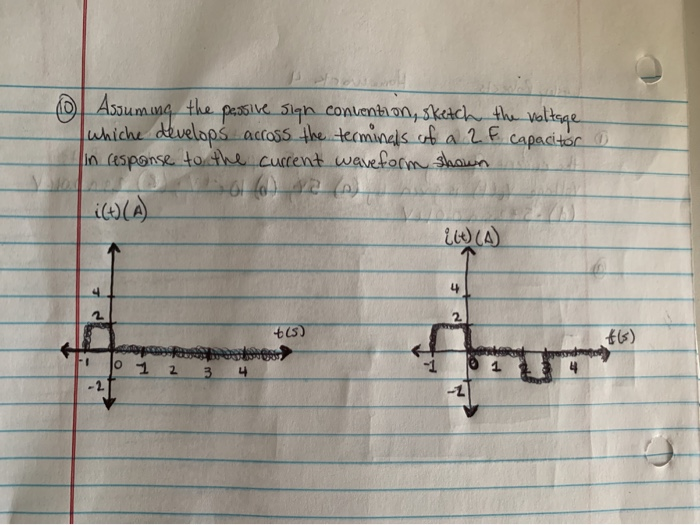 10 Assuming the passive sign convention, sketch the voltage
whiche develops across the terminals of a 2 F capacitor
in response to the current waveform shown
i(t)(A)
4
2
t(s)
-1 0 1 2 3 4
-2
i(t)(A)
4
2
t(s)
-1 0 1 2 3 4
-2